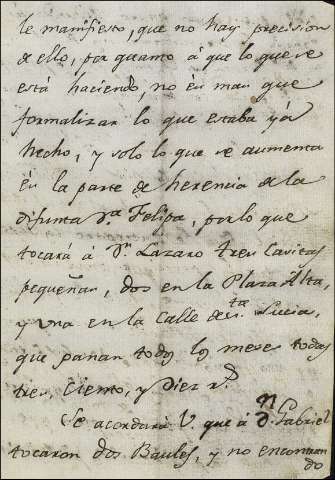 le manifiesto, que no hay precision
de ello, por quanto á que lo que se
está haciendo, no és mas que
formalizar lo que estaba yá
hecho, y solo lo que se aumenta
én la parte de herencia de la
difunta Dª Felipa, por lo que
tocará á Dn Lazaro tres Casitas
pequeñas, dos en la Plaza Alta,
y una en la Calle de Sta Lucia,
que ganan todos los meses todas
tres, ciento, y diez rs.
Se acordará V. que á Dn Gabriel
tocaron dos Baules, y no encontran
do